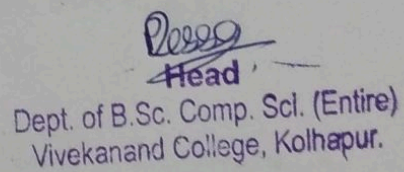 Head
Dept. of B.Sc. Comp. Sci. (Entire)
Vivekanand College, Kolhapur.